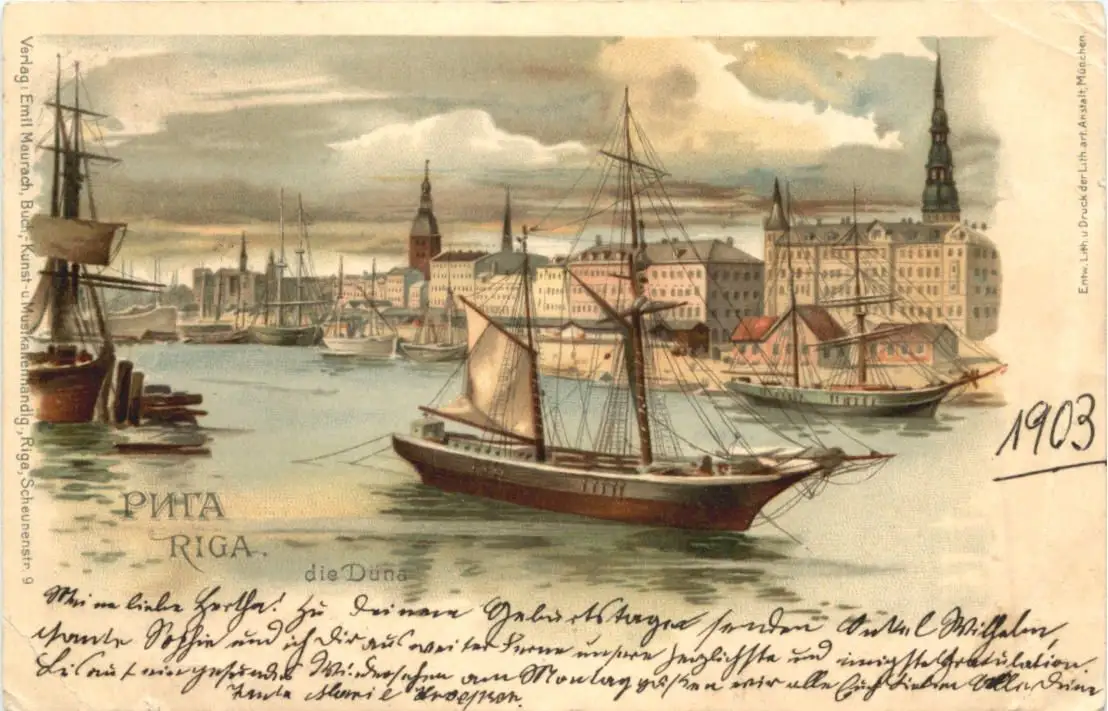 Verlag: Emil Maurach, Buch-, Kunst- u. Musikalienhandlg., Riga, Scheunenstr. 9
Entw. Lith. u. Druck der Lith. art. Anstalt, München.
1903
РИГА
RIGA.
die Düna
Meine liebe Hertha! Zu Deinem Geburtstage senden Onkel Wilhelm,
Tante Sophie und ich Dir aus weiter Ferne unsere herzlichste und innigste Gratulation.
Bis auf ein gesundes Wiedersehen am Montag grüßen wir alle Euch Lieben Alle. Deine
Tante Marie